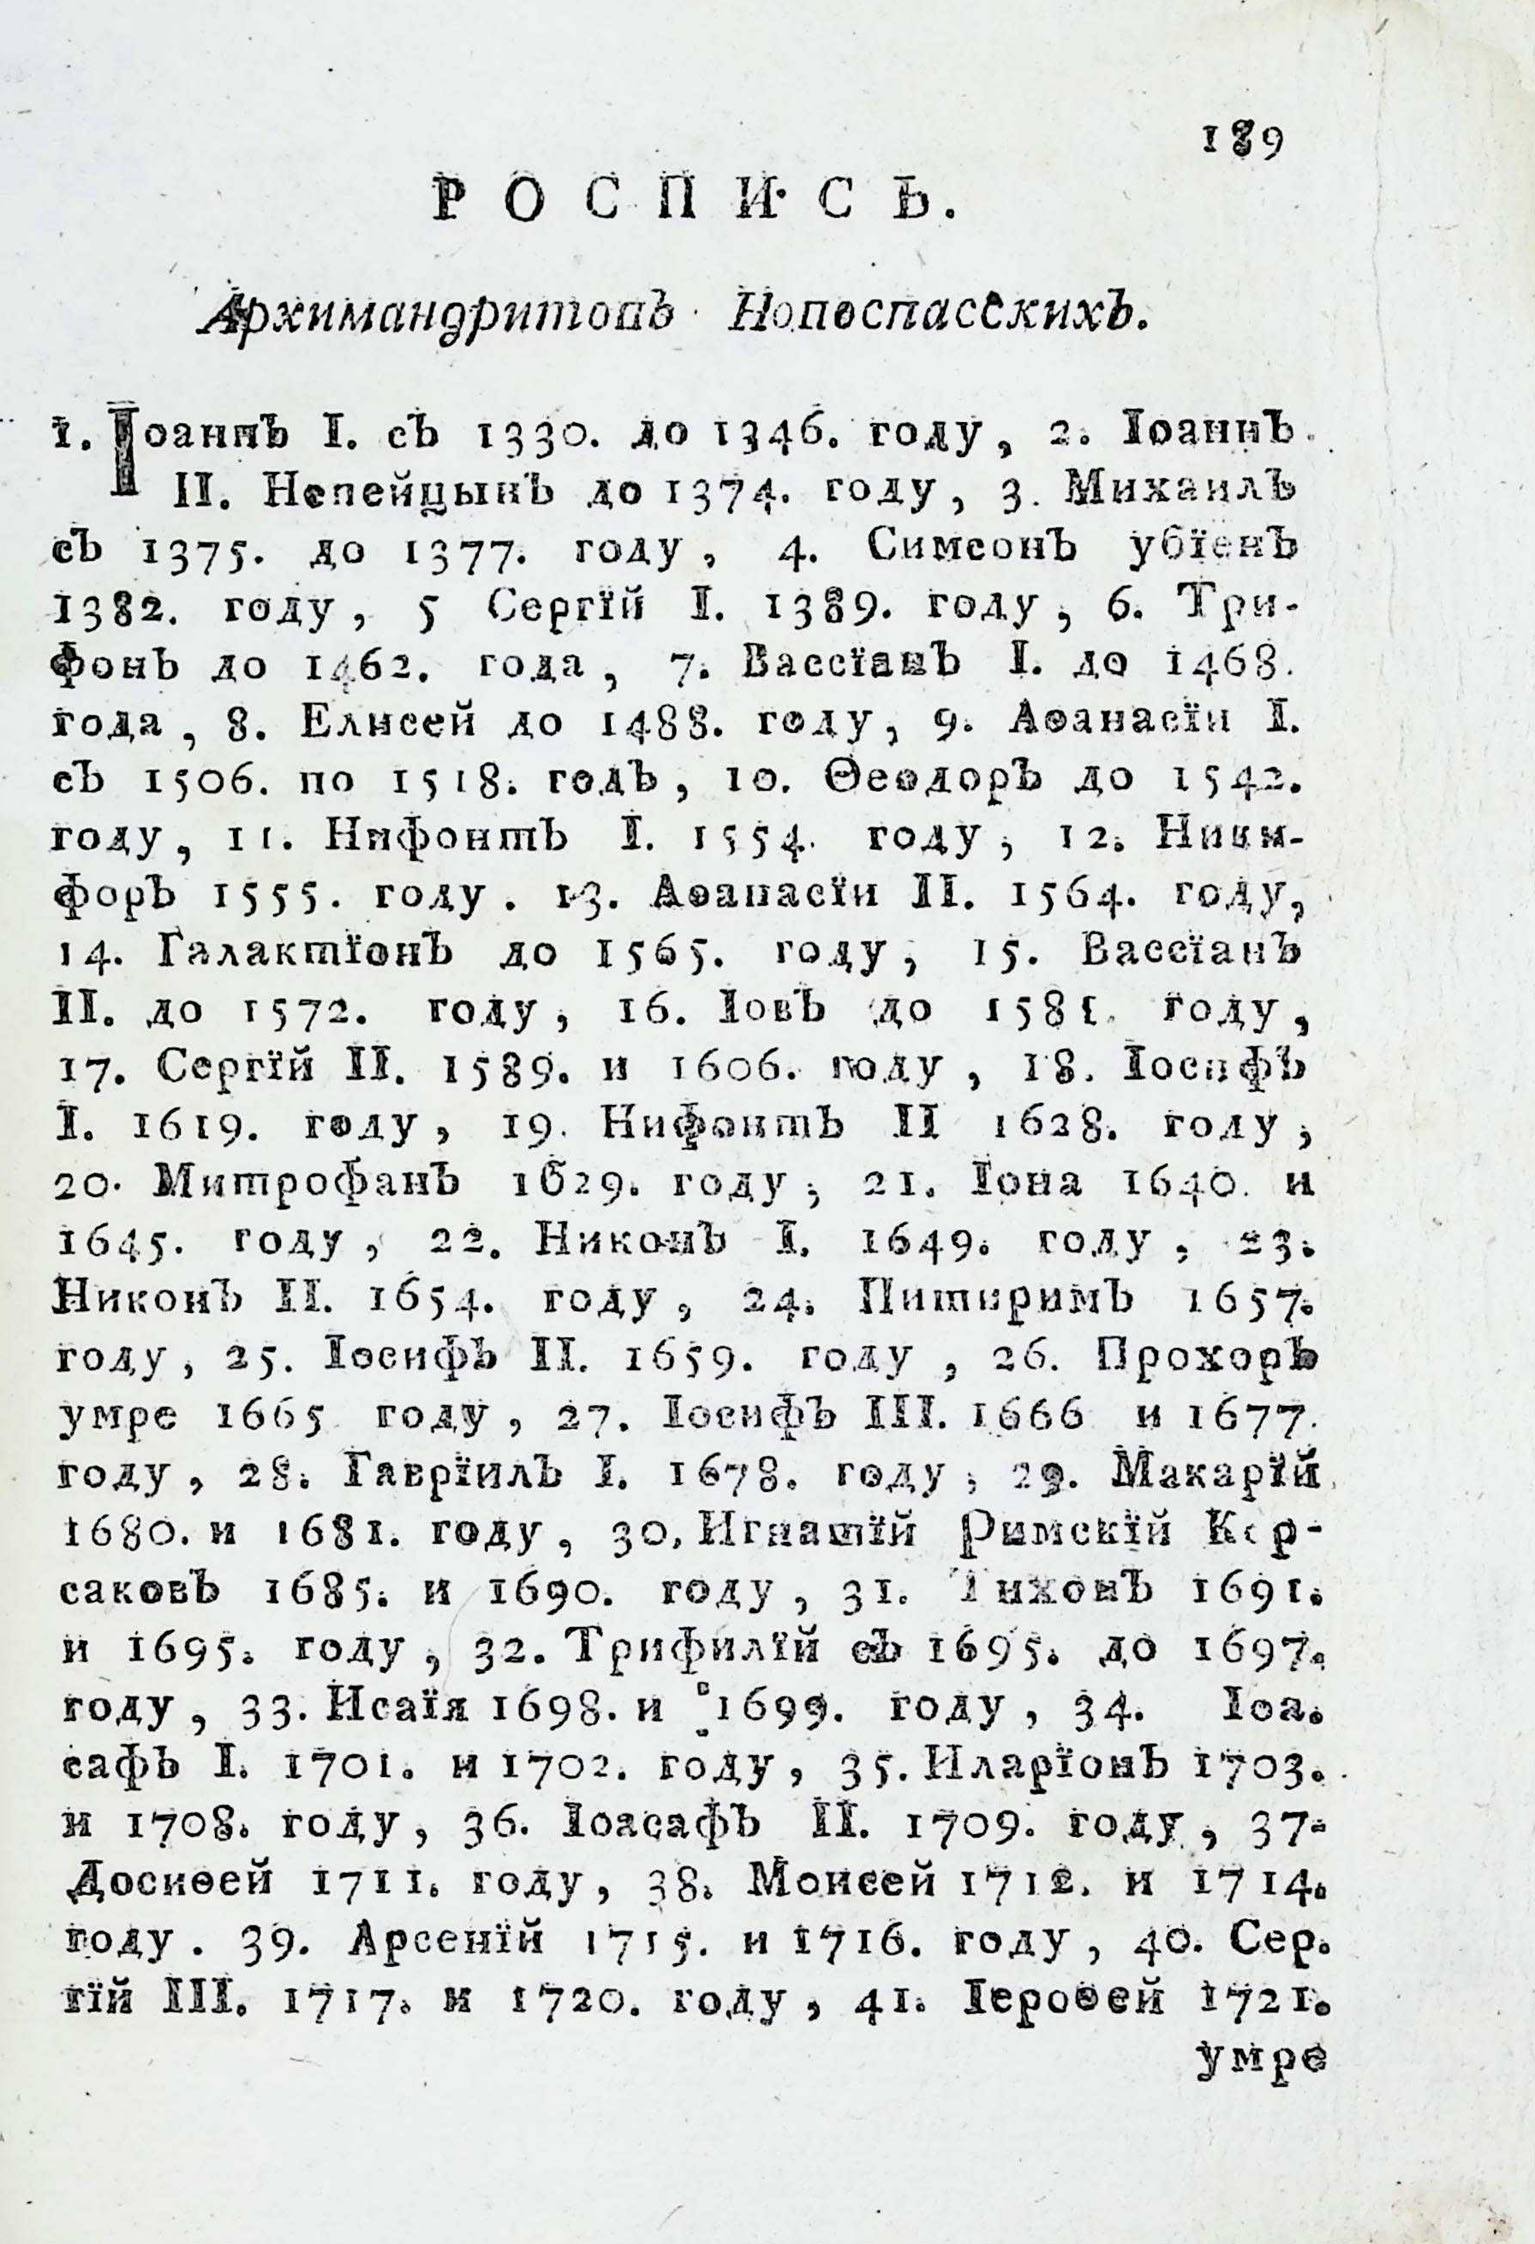 189
РОСПИСЬ.
Архимандритовъ Новоспасскихъ.
1. Іоаннъ I. съ 1330. до 1346. году, 2. Іоаннъ
II. Непейцынъ до 1374. году, 3. Михаилъ
съ 1375. до 1377. году, 4. Симеонъ убїенъ
1382. году, 5 Сергїй I. 1389. году, 6. Три-
фонъ до 1462. года, 7. Вассїанъ I. до 1468.
года, 8. Елисей до 1488. году, 9. Аѳанасїи I.
съ 1506. по 1518. годъ, 10. Ѳеодоръ до 1542.
году, 11. Нифонтъ I. 1554. году, 12. Ники-
форъ 1555. году. 13. Аѳанасїи II. 1564. году,
14. Галактїонъ до 1565. году, 15. Вассїанъ
II. до 1572. году, 16. Іовъ до 1581. году,
17. Сергїй II. 1589. и 1606. году, 18. Іосифъ
I. 1619. году, 19. Нифонтъ II 1628. году,
20. Митрофанъ 1629. году, 21. Іона 1640. и
1645. году, 22. Никонъ I. 1649. году, 23.
Никонъ II. 1654. году, 24. Питиримъ 1657.
году, 25. Іосифъ II. 1659. году, 26. Прохоръ
умре 1665 году, 27. Іосифъ III. 1666 и 1677.
году, 28. Гаврїилъ I. 1678. году, 29. Макарїй
1680. и 1681. году, 30. Игнатїй Римскїй Кор-
саковъ 1685. и 1690. году, 31. Тихонъ 1691.
и 1695. году, 32. Трифилїй съ 1695. до 1697.
году, 33. Исаїя 1698. и 1699. году, 34. Іоа-
сафъ I. 1701. и 1702. году, 35. Иларїонъ 1703.
и 1708. году, 36. Іоасафъ II. 1709. году, 37.
Досиѳей 1711. году, 38. Моисей 1712. и 1714.
году. 39. Арсенїй 1715. и 1716. году, 40. Сер-
гїй III. 1717. и 1720. году, 41. Іероѳей 1721.
умре